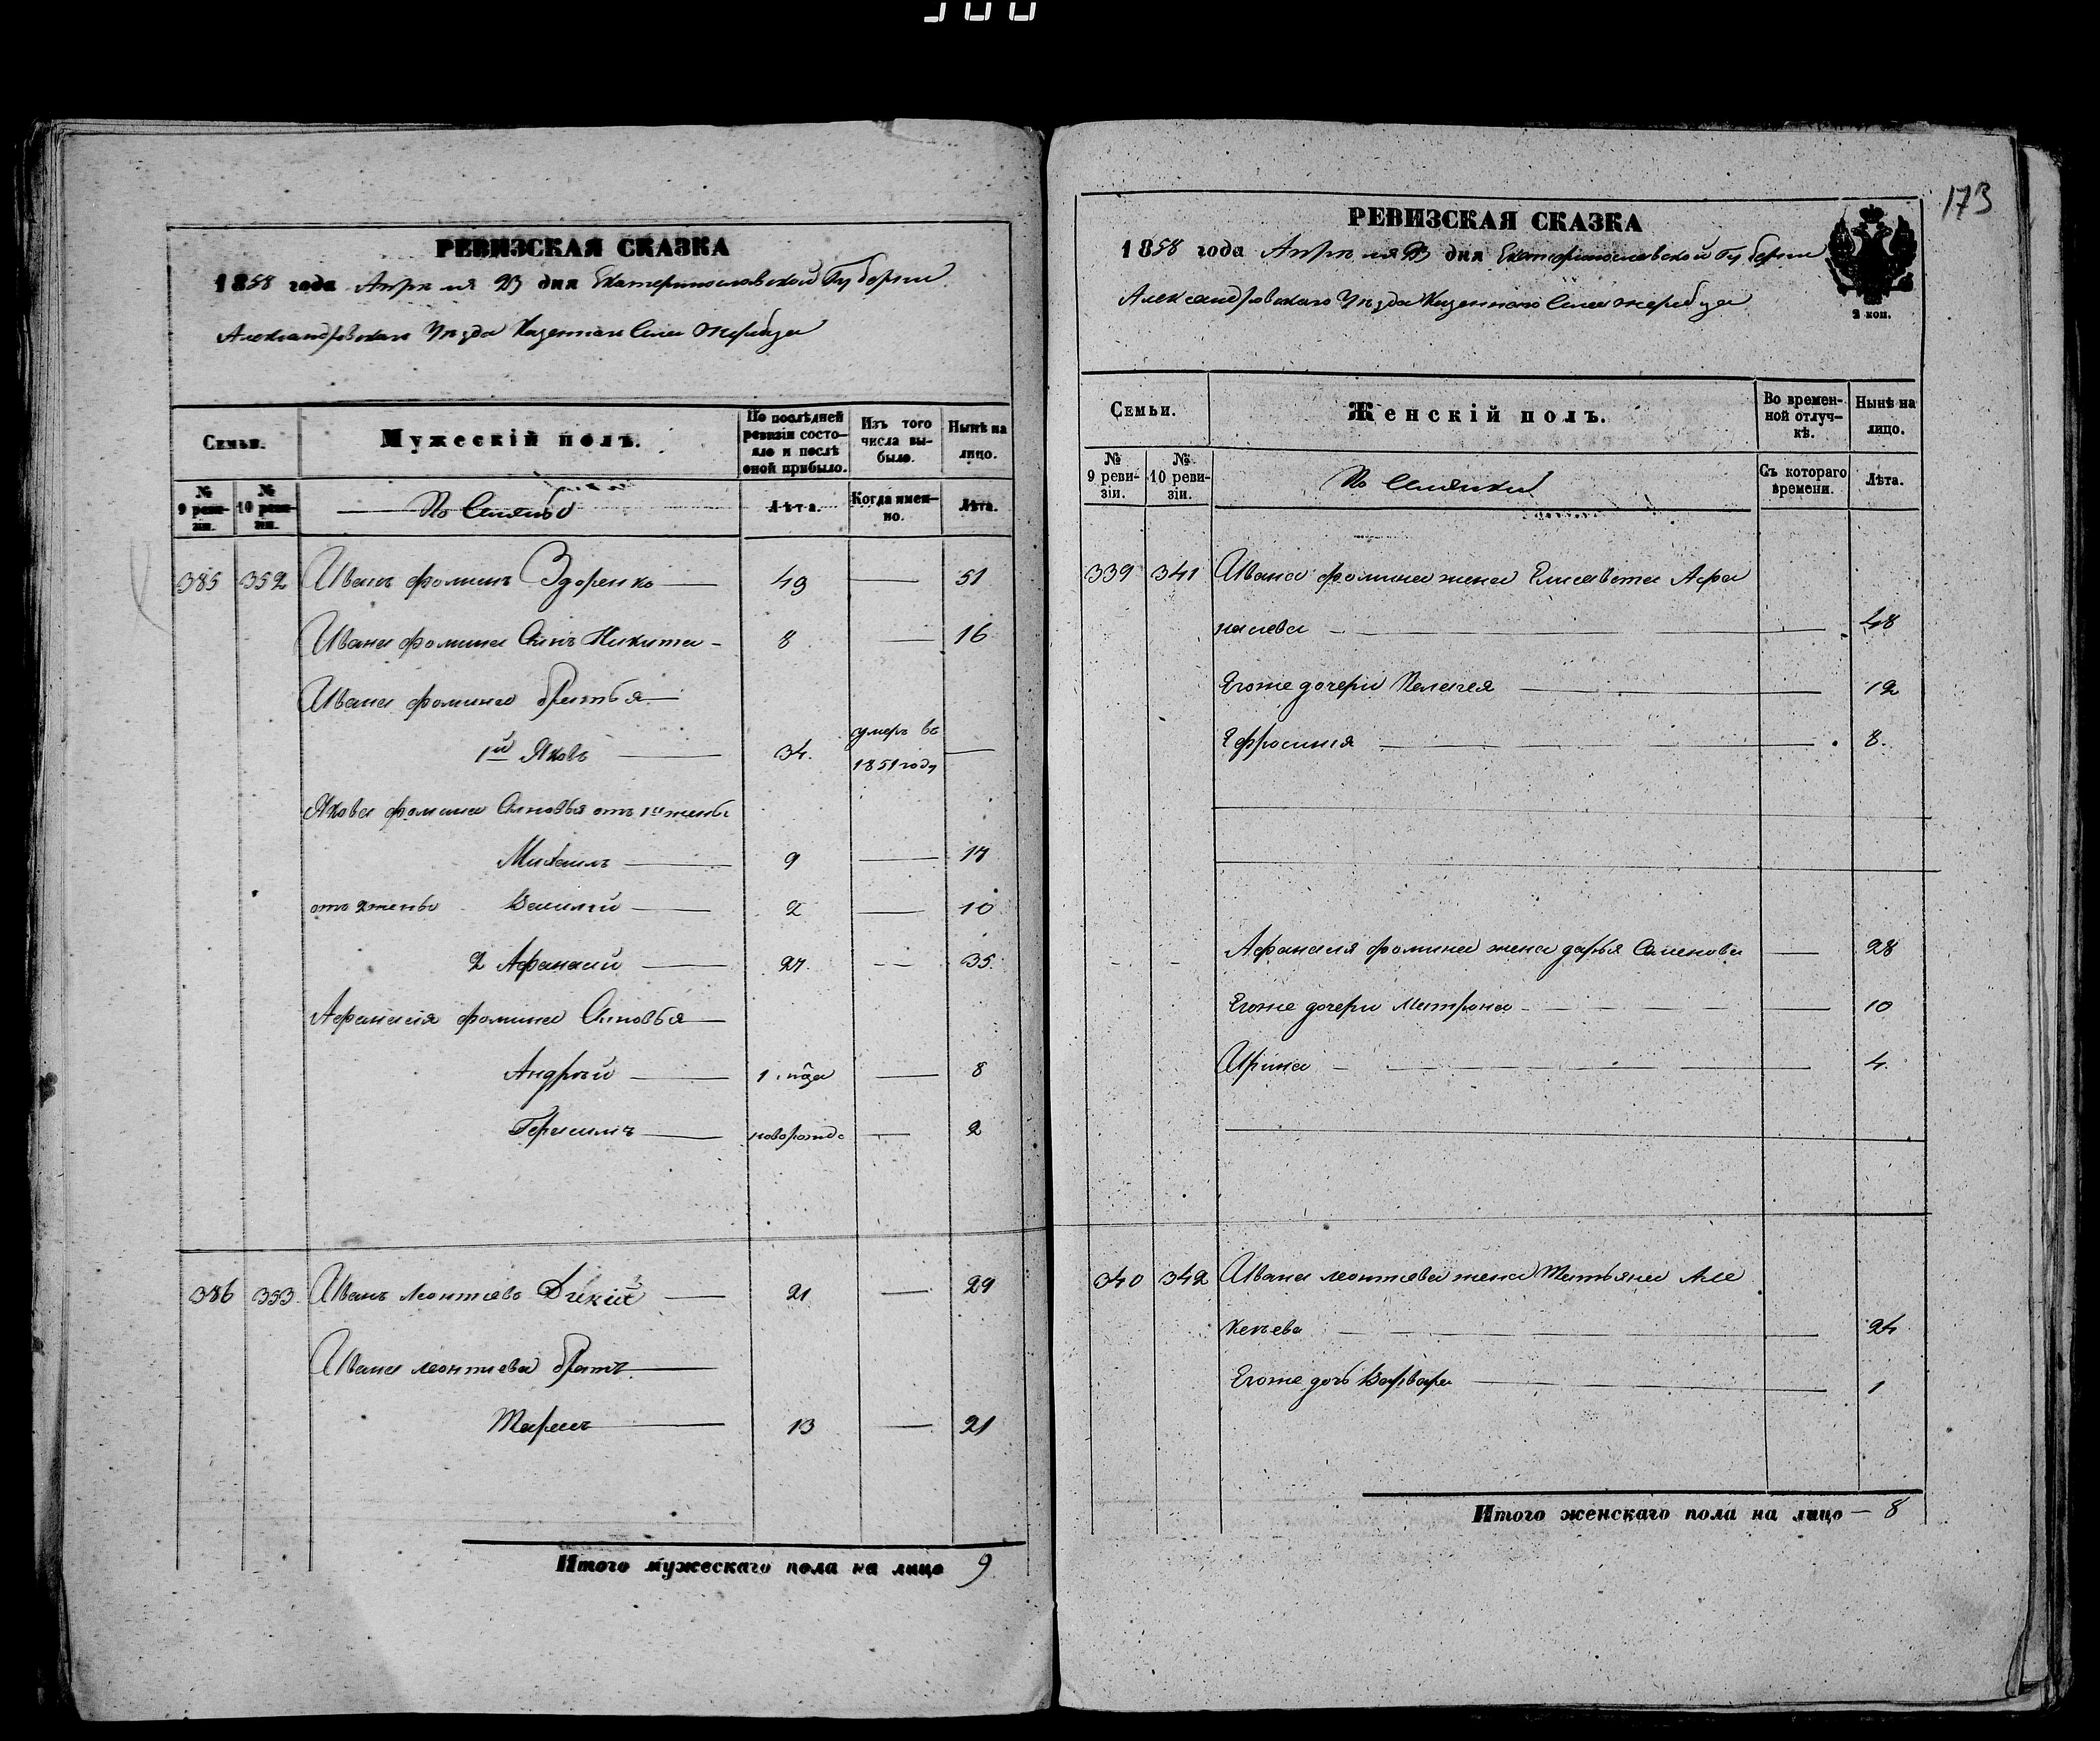 173
РЕВИЗСКАЯ СКАЗКА
1858 года Апреля 23 дня Екатеринославской Губернии
Александровскаго Уезда Казеннаго Села Жеребца
Семьи.
Мужескій полъ.
По послѣдней ревизіи состо-
яло и послѣ
оной прибыло.
Изъ того
числа вы-
было.
Нынѣ на
лицо.
№
9 реви-
зіи.
№
10 реви-
зіи.
Лѣта.
Когда имен-
но.
Лѣта.
385 352 Иванъ Фоминъ Здоренко 49 — 51
Ивана Фомина Сынъ Никита 8 — 16
Ивана Фомина братья
1й Яковъ 34. умеръ въ 1851 году —
Якова Фомина Сыновья отъ 1й жены
Михаилъ 9 — 17
отъ 2 жены Василий 2 — 10
2 Афанасий 27. — 35.
Афанасія Фомина Сыновья
Андрей 1. года — 8
Герасимъ новорожд — 2
386 353. Иванъ Леонтиевъ Дикій 21 — 29
Ивана Леонтиева братъ
Тарасъ 13 — 21
Итого мужескаго пола на лицо 9
РЕВИЗСКАЯ СКАЗКА
1858 года Апреля 23 дня Екатеринославской Губернии
Александровскаго Уезда Казеннаго Села Жеребца
2 коп.
Семьи.
Женскій полъ.
Во времен-
ной отлуч-
кѣ.
Нынѣ на
лицо.
№
9 реви-
зіи.
№
10 реви-
зіи.
Съ котораго
времени.
Лѣта.
339 341 Ивана Фомина жена Елисавета Афа
насиева — 48
Егоже дочери Пелагея — 12
Ефросиния — 8.
Афанасия Фомина жена дарья Семенова — 28
Егоже дочери Матрона — 10
Ирина — 4.
340 342 Ивана Леонтиева жена Татьяна Але
ксеева — 24
Егоже дочь Варвара — 1
Итого женскаго пола на лицо — 8